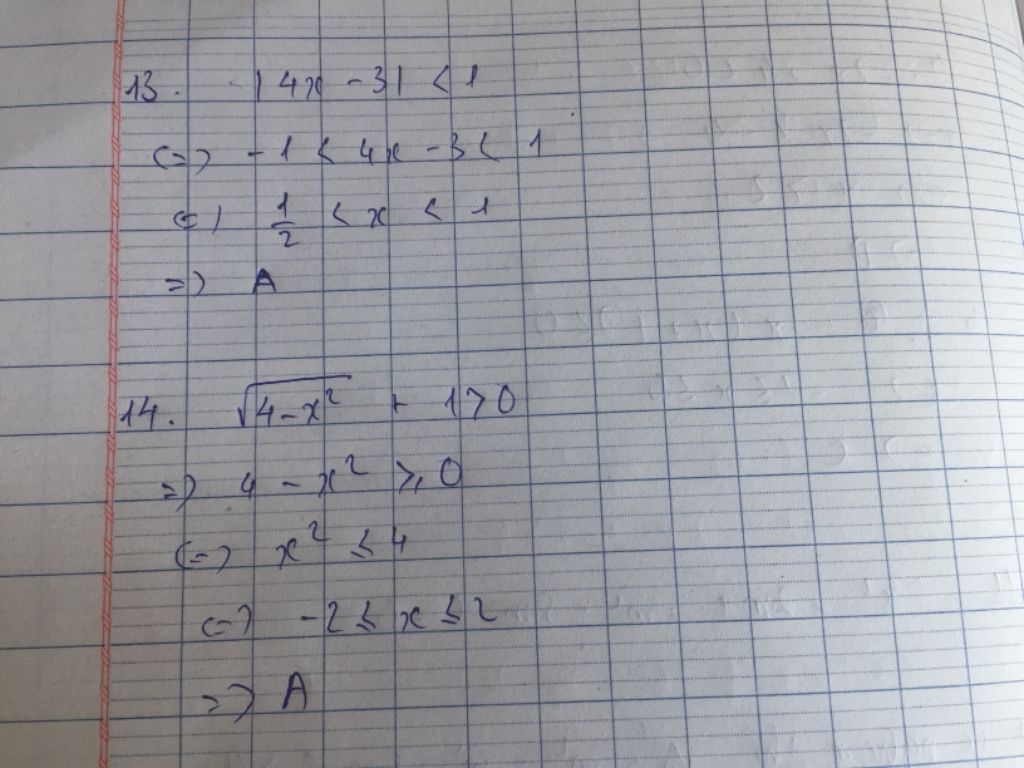 13. |4x - 3| < 1
(=) -1 < 4x - 3 < 1
(=) 1/2 < x < 1
=) A
14. √(4 - x²) + 1 > 0
=) 4 - x² ≥ 0
(=) x² ≤ 4
(=) -2 ≤ x ≤ 2
=) A